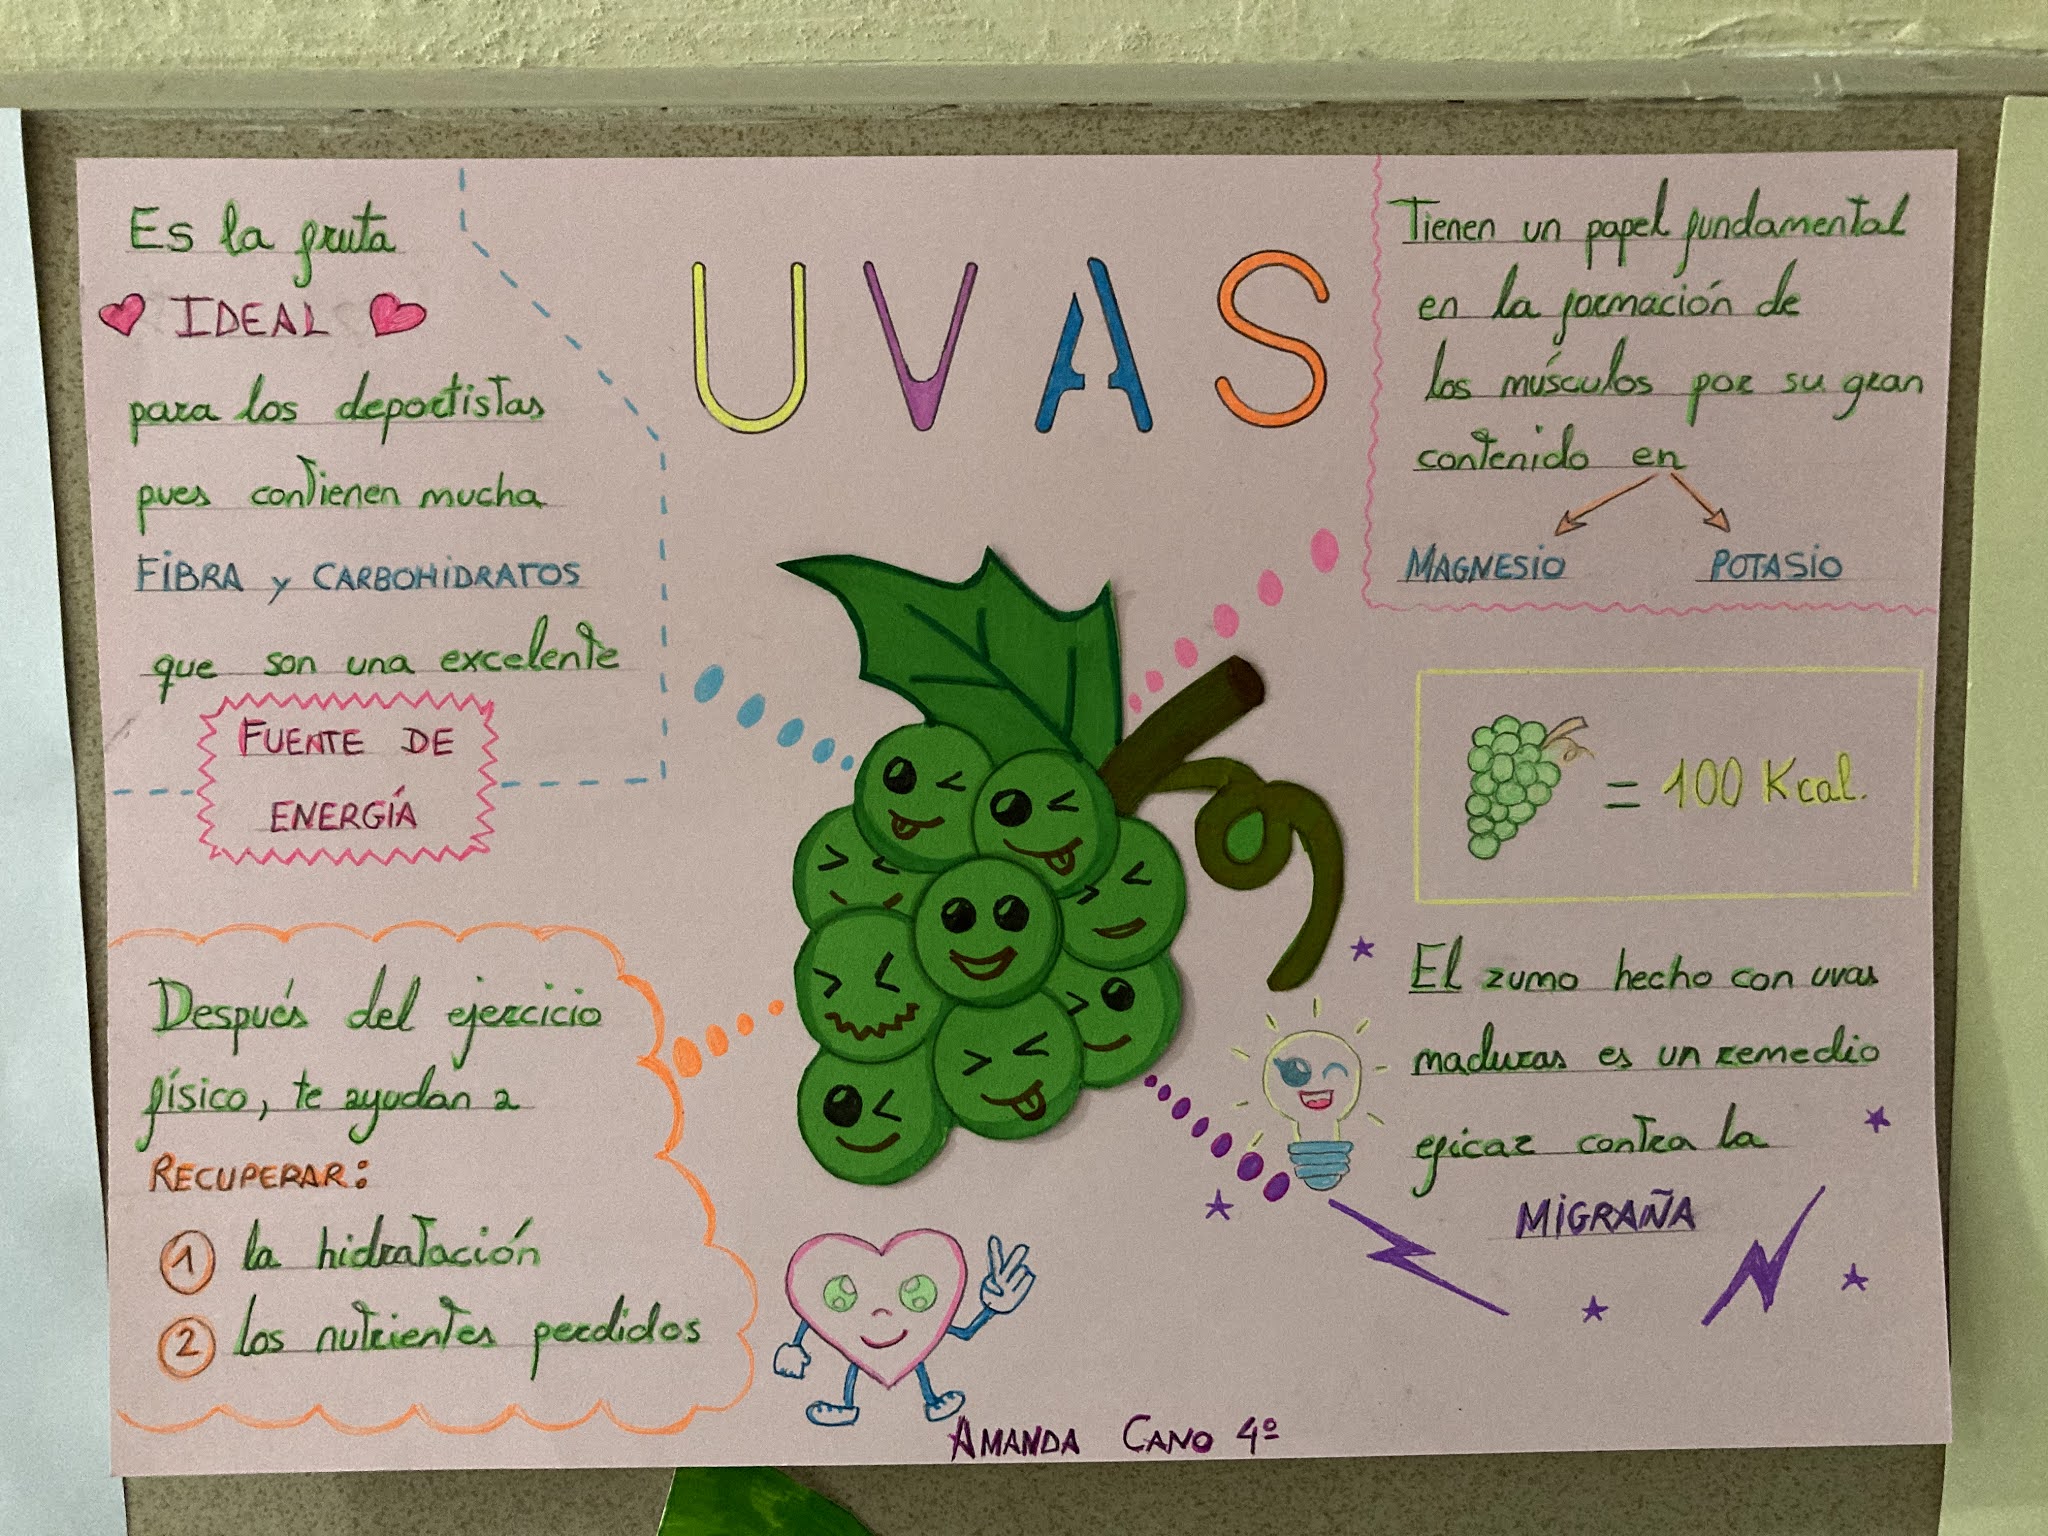 UVAS
Es la fruta
IDEAL
para los deportistas
pues contienen mucha
FIBRA y CARBOHIDRATOS
que son una excelente
FUENTE DE
ENERGÍA
Tienen un papel fundamental
en la formación de
los músculos por su gran
contenido en
MAGNESIO POTASIO
= 100 Kcal.
Después del ejercicio
físico, te ayudan a
RECUPERAR:
1 la hidratación
2 los nutrientes perdidos
El zumo hecho con uvas
maduras es un remedio
eficaz contra la
MIGRAÑA
AMANDA CANO 4º